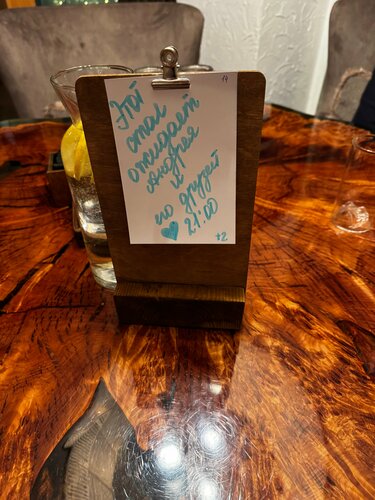 14
Этот
стол
ожидает
Андрея
и
его друзей
♥ 21:00
+2